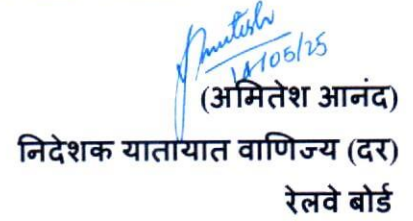 Amitesh
14/05/25
(अमितेश आनंद)
निदेशक यातायात वाणिज्य (दर)
रेलवे बोर्ड